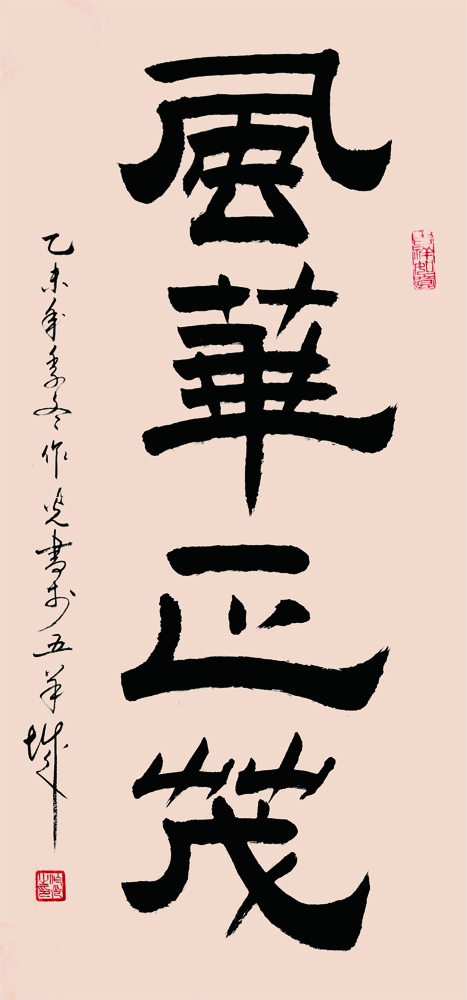 風華正茂
乙未年季冬作光書於五羊城